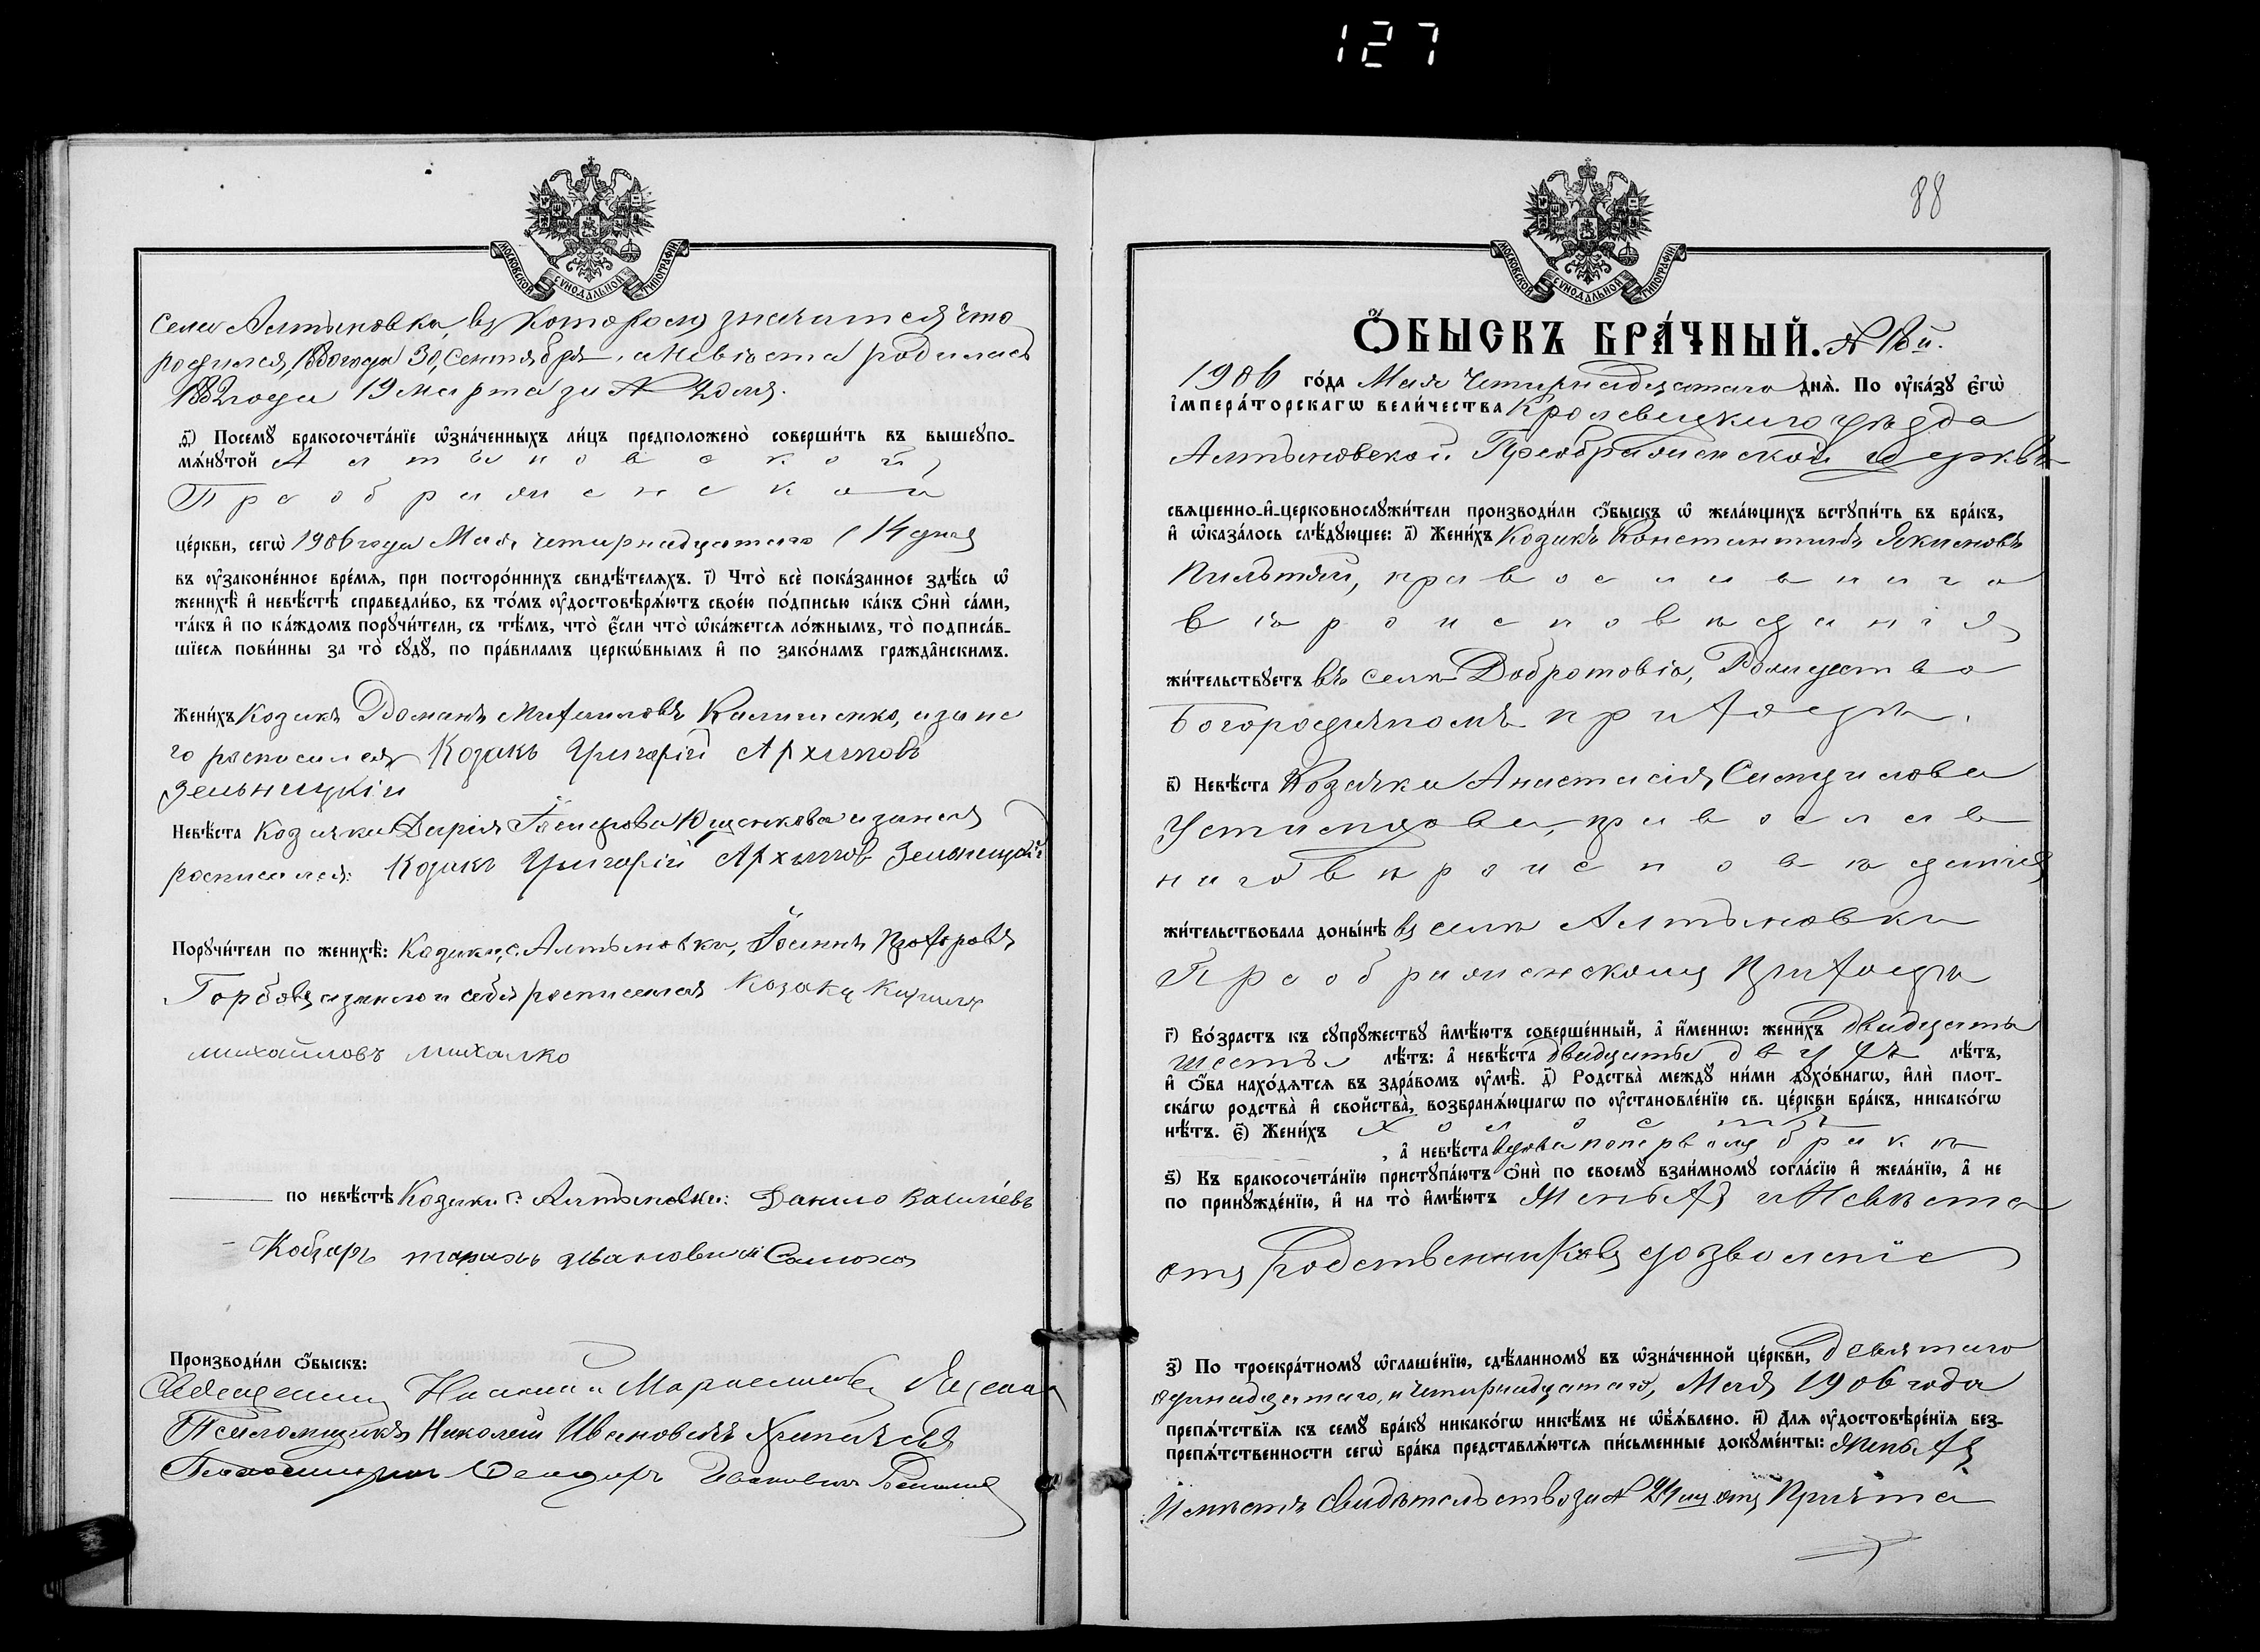 127
МОСКОВСКОЙ СѴНОДАЛЬНОЙ ТИПОГРАФІИ
села Алтыновка, въ которомъ значится что
родился, 1880 года 30, Сентября, а Невѣста родилась
1882 года 19 марта за №
д҃) Посемꙋ̀ бракосочета́нїе ѡ҆зна́ченныхъ ли́цъ предположено̀ соверши́ть въ вышеꙋпо-
мѧ́нꙋтой Алтыновской,
Преображенской
це́ркви, сегѡ̀ 1906 года Мая, четырнадцатаго (14 дня
въ ᲂу҆законе́нное вре́мѧ, при посторо́ннихъ свидѣ́телѧхъ. і҃) Что̀ всѐ пока́занное здѣ́сь ѡ҆
женихѣ̀ и҆ невѣ́стѣ справедли́во, въ то́мъ ᲂу҆достовѣрѧ́ютъ свое́ю по́дписью ка́къ ѻ҆нѝ са́ми,
та́къ и҆ по ка́ждомъ порꙋчи́тели, съ тѣ́мъ, что̀ є҆́сли что̀ ѡ҆ка́жетсѧ ло́жнымъ, то̀ подписа́в-
шїесѧ пови́нны за то̀ сꙋдꙋ̀, по пра́виламъ церкѡ́внымъ и҆ по зако́намъ гражда̑нскимъ.
Жени́хъ Козакъ Романъ Михаиловъ Калишенко, а за не
го росписался Козакъ Григорій Архиповъ
Зельницкій
Невѣ́ста Козачка Дарія а за нея
росписался: Козакъ Григорій Архипов Зельницкій
Порꙋчи́тели по женихѣ̀: Козаки, с. Алтыновки, Іоаннъ Прохоровъ
Горбовъ а за него и себя росписался Козакъ Кирилъ
михайловъ михалко
по невѣ́стѣ Козаки с. Алтыновки: Данило Василіевъ
Кобзарь тарасъ ивановичъ Самоха
Производи́ли ѻ҆́быскъ:
Священникъ
Псаломщикъ Николай Ивановичъ
Ѳеодоръ Ивановичъ
88
МОСКОВСКОЙ СѴНОДАЛЬНОЙ ТИПОГРАФІИ
Ѻ҆́БЫСКЪ БРА́ЧНЫЙ. № 18й.
1906 го́да Мая Четырнадцатаго днѧ̀. По ᲂу҆ка́зꙋ є҆гѡ̀
і҆мпера́торскагѡ вели́чества Кролевецкаго уѣзда
Алтыновской Преображенской церкви
свѧщенно-и҆-церковнослꙋжи́тели производи́ли ѻ҆́быскъ ѡ҆ жела́ющихъ встꙋпи́ть въ бра́къ,
и҆ ѡ҆каза́лось слѣ́дꙋющее: а҃) Жени́хъ Козакъ Константинъ Якимовъ
православнаго
вѣроисповѣданія
жи́тельствꙋетъ въ селѣ Добротовѣ, Рождество
Богородичномъ приходѣ.
в҃) Невѣ́ста Козачка Анастасія, Самуилова
православ
наго вѣроисповѣданія
жи́тельствовала доны́нѣ въ селѣ Алтыновки
Преображенскомъ приходѣ
г҃) Во́зрастъ къ сꙋпрꙋ́жествꙋ и҆мѣ́ютъ соверше́нный, а҆ и҆́меннѡ: жени́хъ двадцать
шесть лѣ́тъ: а҆ невѣ́ста двадцать двухъ лѣ́тъ,
и҆ ѻ҆́ба нахо́дѧтсѧ въ здра́вомъ ᲂу҆мѣ̀. д҃) Родства̀ междꙋ̀ ни́ми дꙋхо́внагѡ, и҆лѝ плот-
ска́гѡ родства̀ и҆ свойства̀, возбранѧ́ющагѡ по ᲂу҆становле́нїю св. це́ркви бра́къ, никако́гѡ
нѣ́тъ. є҃) Жени́хъ холостъ
, а҆ невѣ́ста вдова по первомъ бракѣ
ѕ҃) Къ бракосочета́нїю пристꙋпа́ютъ ѻ҆нѝ по своемꙋ̀ взаи́мномꙋ согла́сїю и҆ жела́нїю, а҆ не
по принꙋжде́нїю, и҆ на то̀ и҆мѣ́ютъ Женихъ и Невѣста
отъ Родственниковъ дозволеніе
з҃) По троекра́тномꙋ ѡ҆глаше́нїю, сдѣ́ланномꙋ въ ѡ҆зна́ченной це́ркви, Девятаго
одинадцатаго, и четырнадцатаго, Мая 1906 года
препѧ́тствїѧ къ семꙋ̀ бра́кꙋ никако́гѡ никѣ́мъ не ѡ҆б̾ѧ́влено. и҃) Длѧ ᲂу҆достовѣре́нїѧ без-
препѧ́тственности сегѡ̀ бра́ка представлѧ́ютсѧ пи́сьменные докꙋме́нты: Женихъ
Имѣетъ свидѣтельство за № отъ Причта